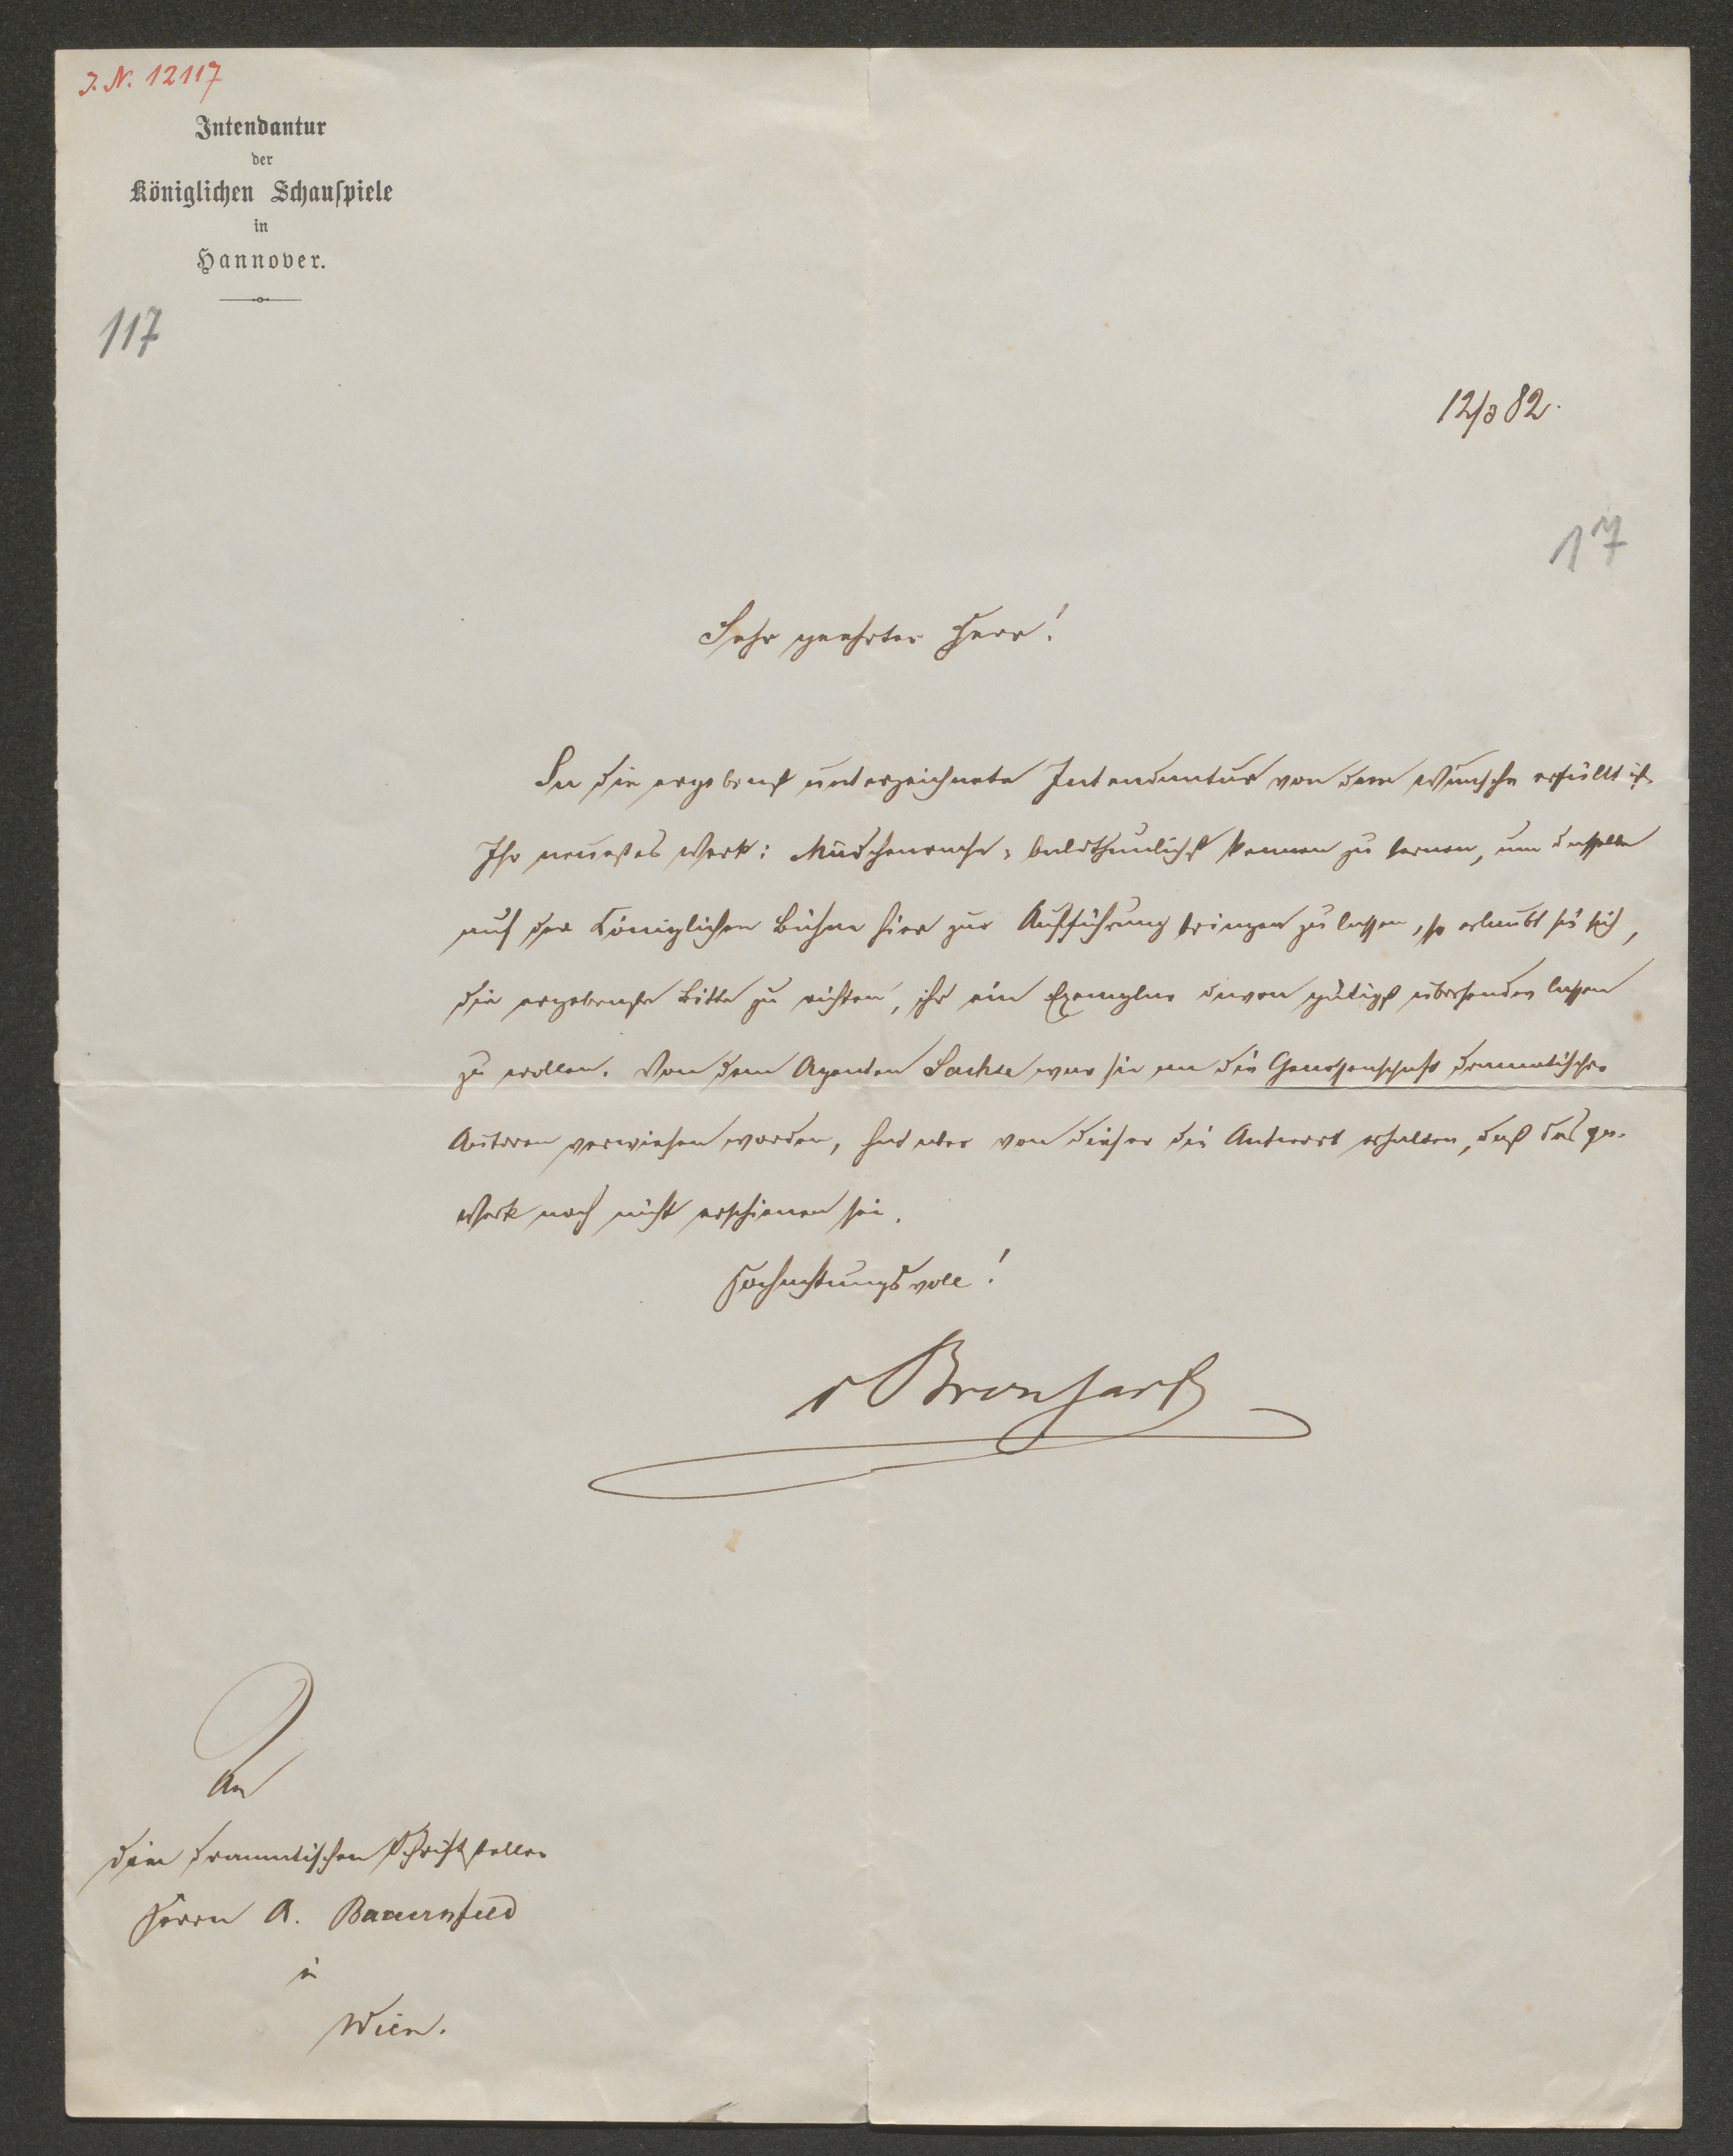 J. N. 12117
Intendantur
der
Königlichen Schauſpiele
in
Hannover.
117
12/3 82.
17
Sehr geehrter Herr!
Da die ergebenst unterzeichnete Intendantur von dem Wunsche erfüllt ist
Ihr neuestes Werk: Mädchenrache, baldthunlichst kennen zu lernen, um dasselbe
auf der Königlichen Bühne hier zur Aufführung bringen zu lassen, so erlaubt sie sich,
die ergebenste Bitte zu richten, ihr ein Exemplar davon gütigst übersenden lassen
zu wollen. Von dem Agenten Sachse war sie an die Genossenschaft dramatischer
Autoren verwiesen worden, hat aber von dieser die Antwort erhalten, daß das gen.
Werk noch nicht erschienen sei.
Hochachtungsvoll!
v Bronsart
An
den dramatischen Schriftsteller
Herrn A. Bauernfeld
in
Wien.